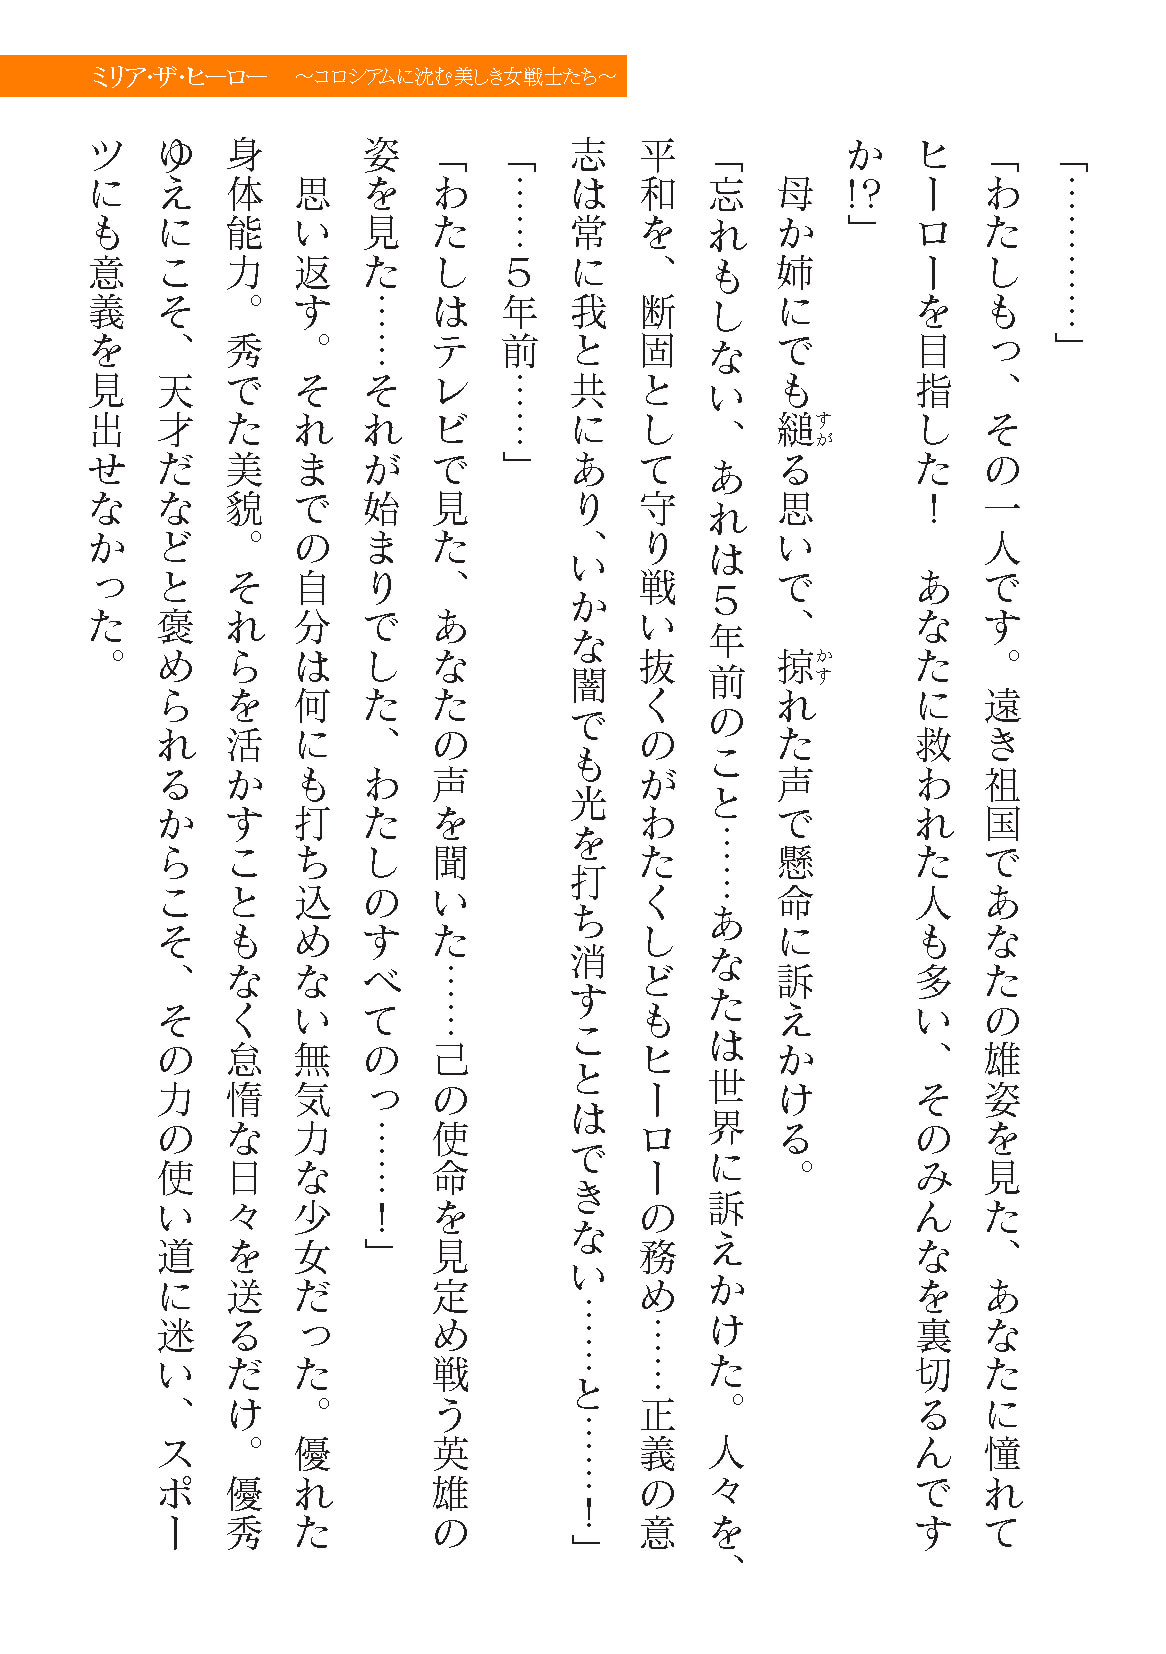 ミリア・ザ・ヒーロー　～コロシアムに沈む美しき女戦士たち～
「…………」
「わたしもっ、その一人です。遠き祖国であなたの雄姿を見た、あなたに憧れて
ヒーローを目指した！　あなたに救われた人も多い、そのみんなを裏切るんです
か!?」
　母か姉にでも縋る思いで、掠れた声で懸命に訴えかける。
「忘れもしない、あれは５年前のこと……あなたは世界に訴えかけた。人々を、
平和を、断固として守り戦い抜くのがわたくしどもヒーローの務め……正義の意
志は常に我と共にあり、いかな闇でも光を打ち消すことはできない……と……！」
「……５年前……」
「わたしはテレビで見た、あなたの声を聞いた……己の使命を見定め戦う英雄の
姿を見た……それが始まりでした、わたしのすべてのっ……！」
　思い返す。それまでの自分は何にも打ち込めない無気力な少女だった。優れた
身体能力。秀でた美貌。それらを活かすこともなく怠惰な日々を送るだけ。優秀
ゆえにこそ、天才だなどと褒められるからこそ、その力の使い道に迷い、スポー
ツにも意義を見出せなかった。